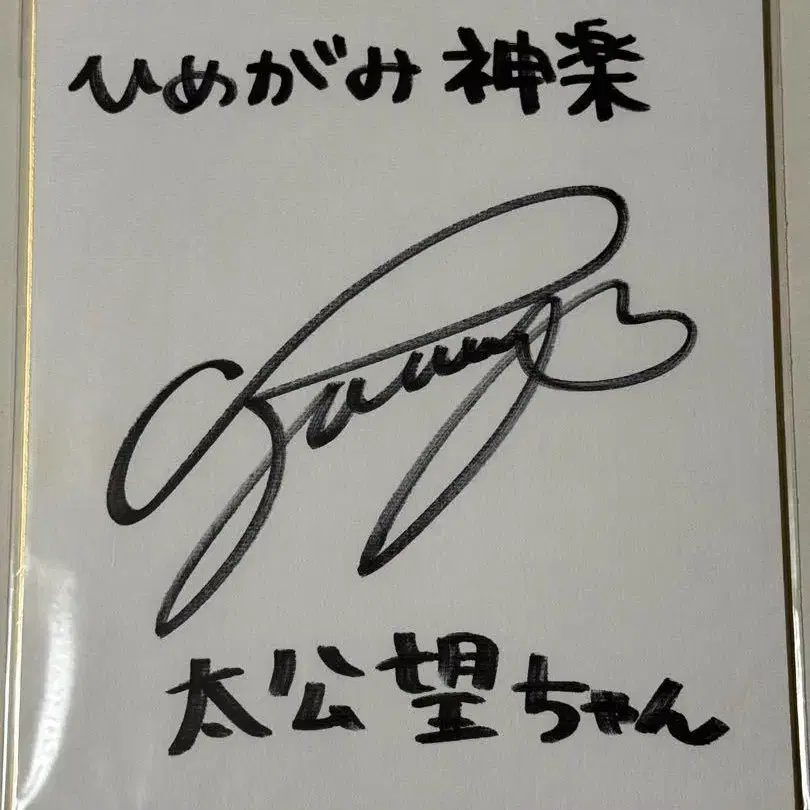 ひめがみ神楽
太公望ちゃん